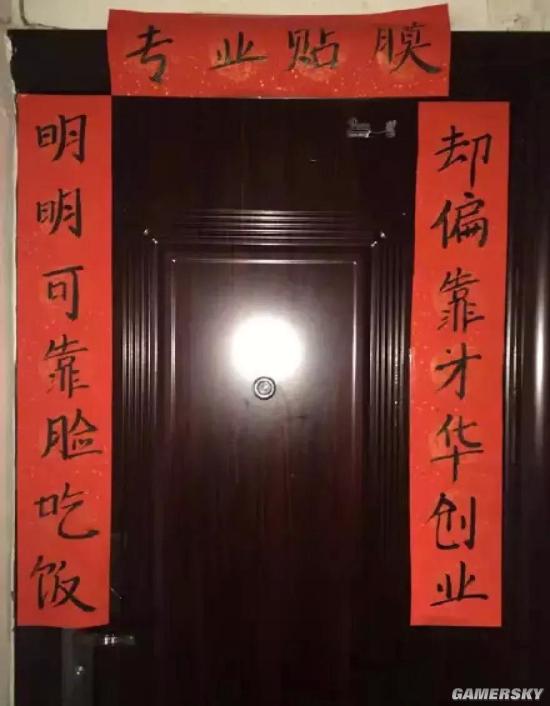 专业贴膜
明明可靠脸吃饭
却偏靠才华创业
GAMERSKY